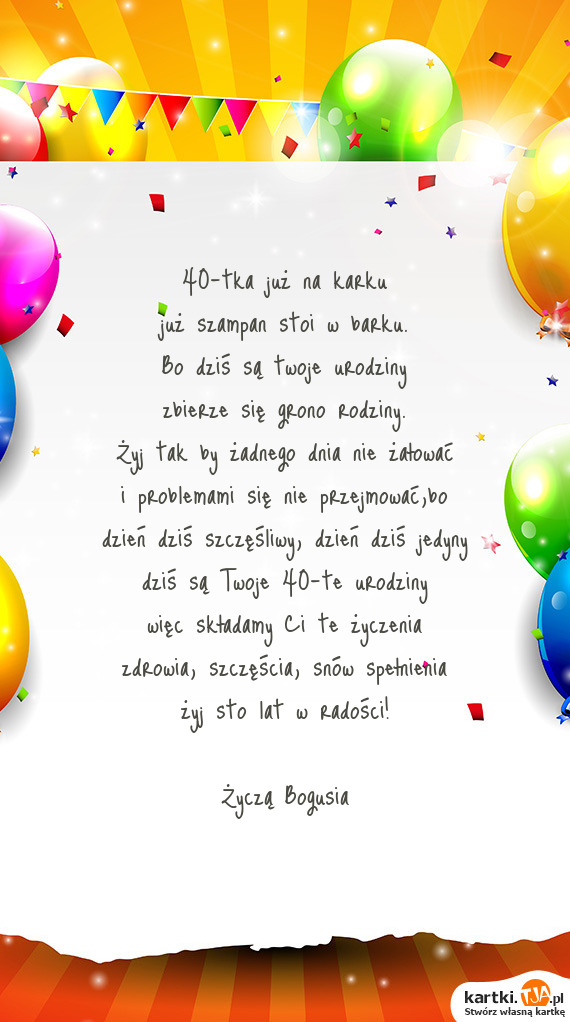 40-tka już na karku
już szampan stoi w barku.
Bo dziś są twoje urodziny
zbierze się grono rodziny.
Żyj tak by żadnego dnia nie żałować
i problemami się nie przejmować,bo
dzień dziś szczęśliwy, dzień dziś jedyny
dziś są Twoje 40-te urodziny
więc składamy Ci te życzenia
zdrowia, szczęścia, snów spełnienia
żyj sto lat w radości!
Życzą Bogusia
kartki.TJA.pl
Stwórz własną kartkę